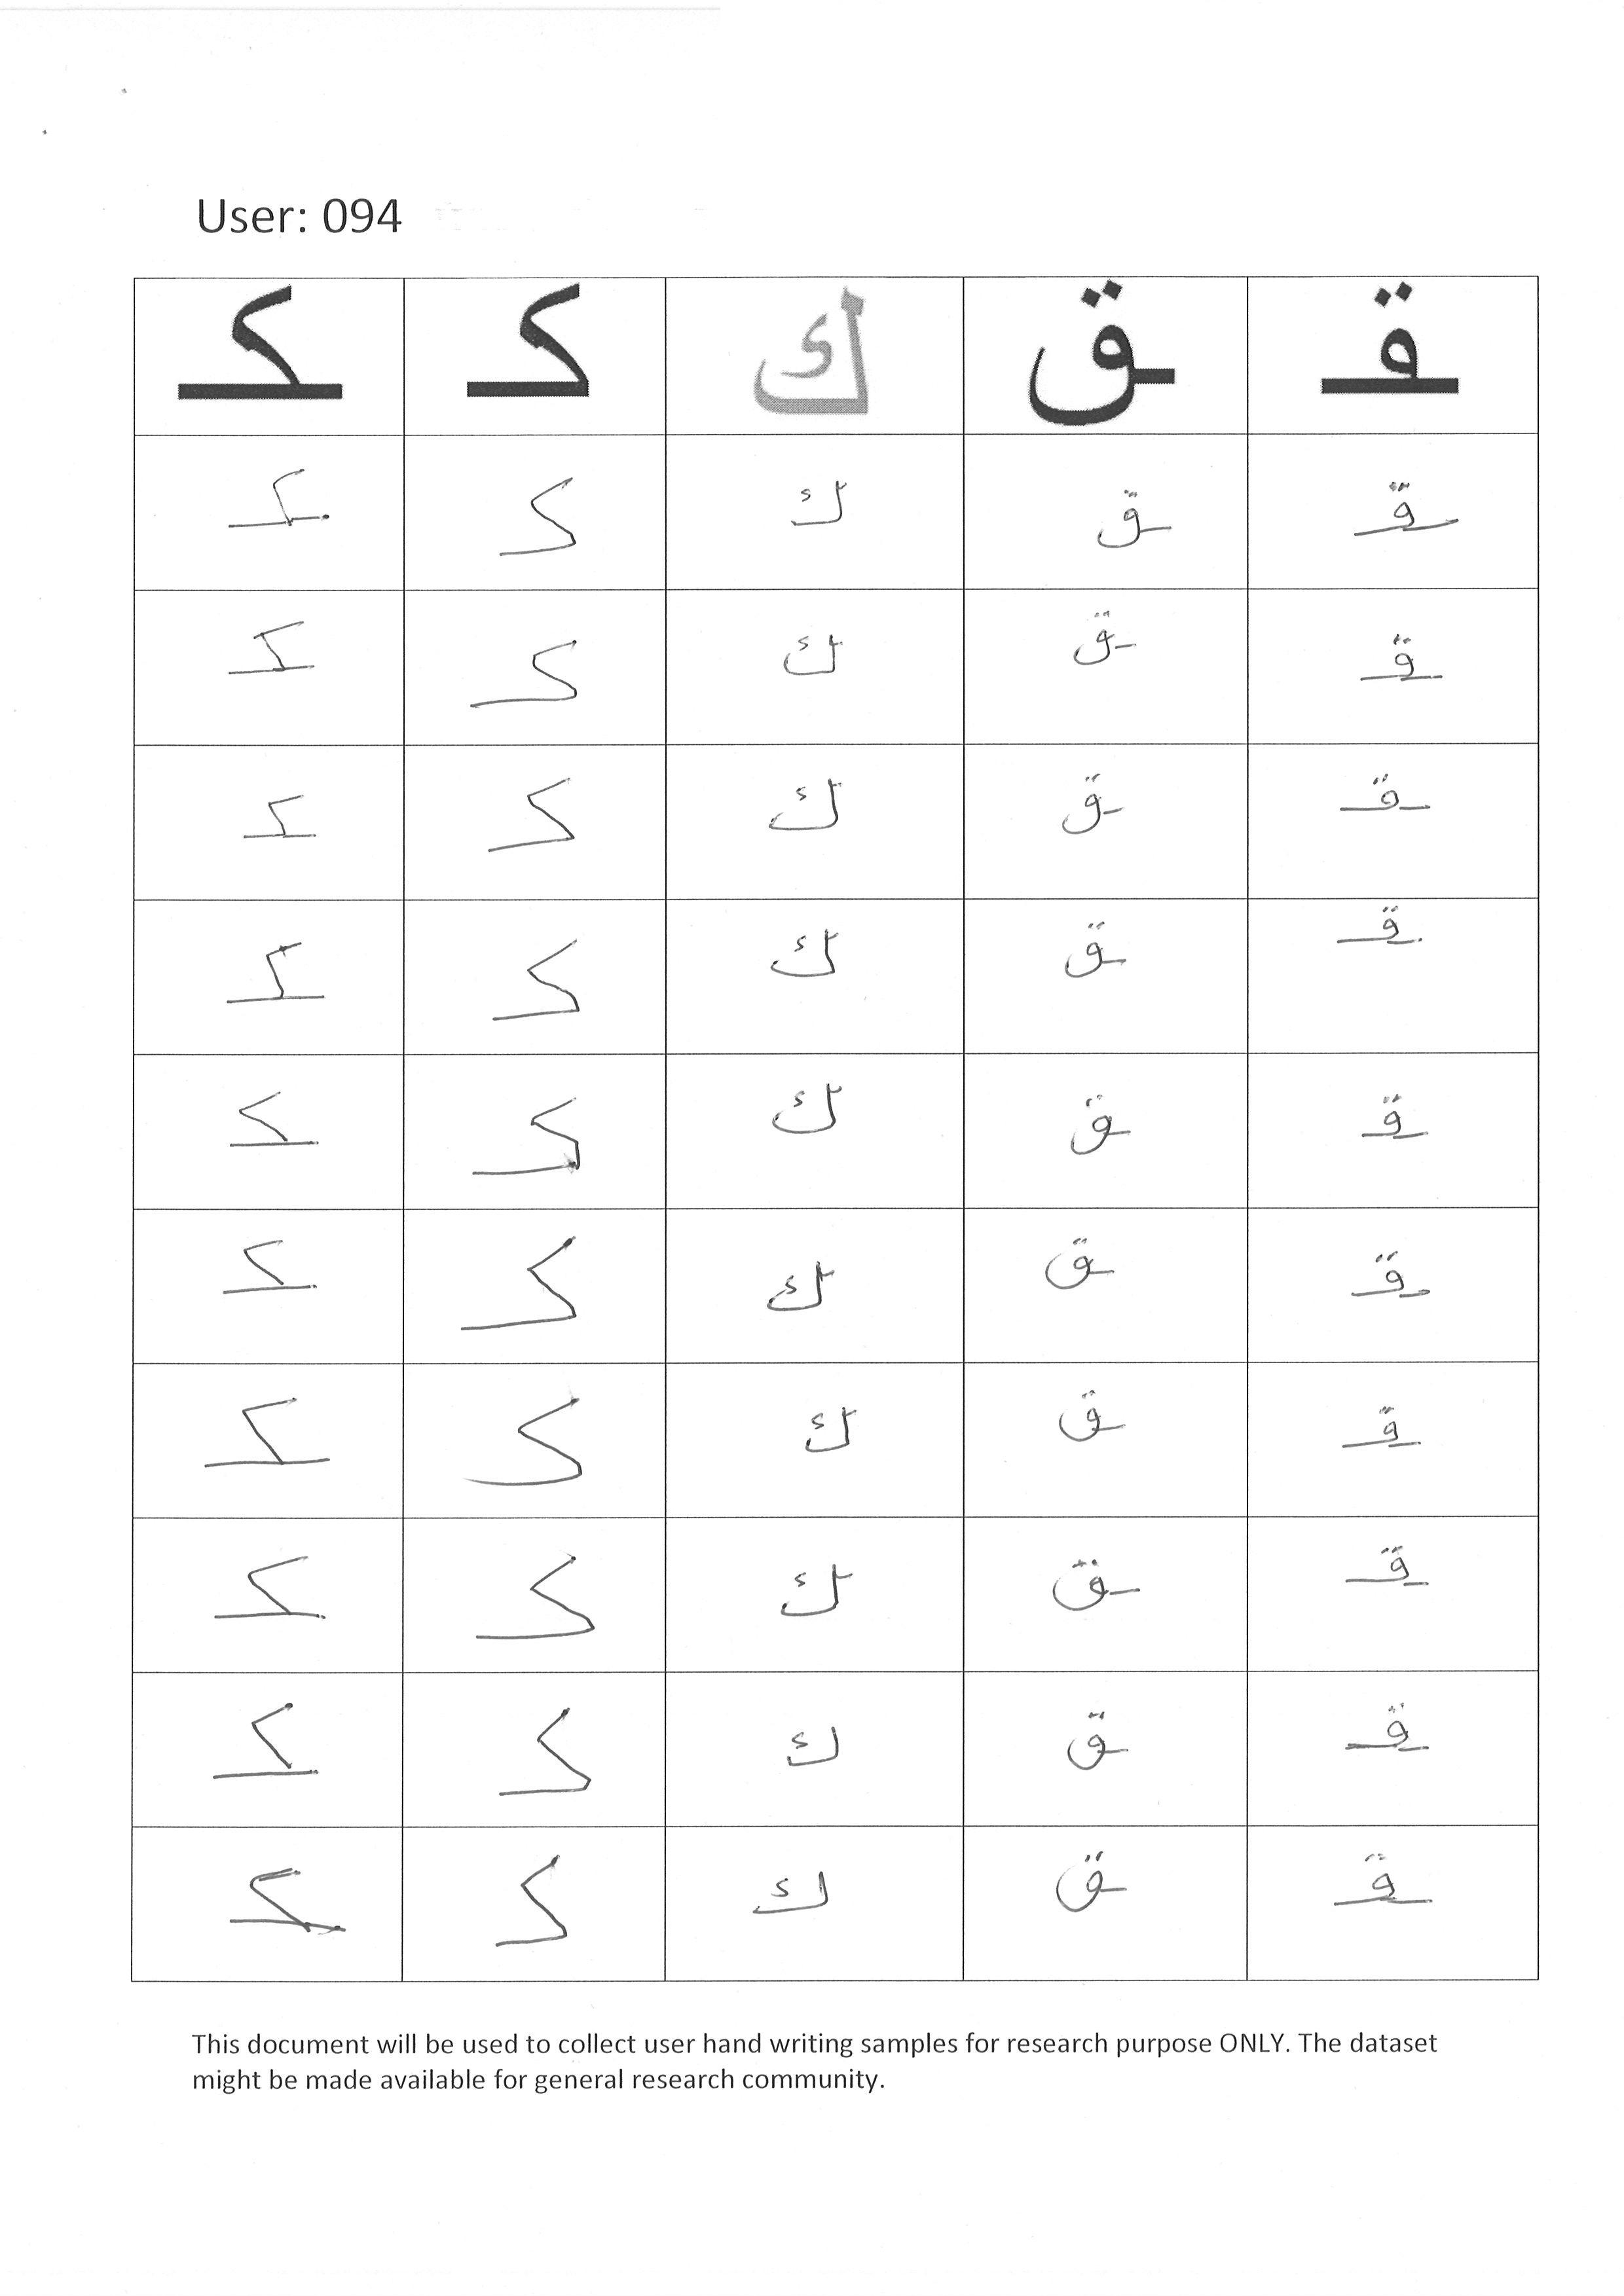 User: 094
ـقـ ـق ك كـ ـكـ
ـقـ ـق ك كـ ـكـ
ـقـ ـق ك كـ ـكـ
ـقـ ـق ك كـ ـكـ
ـقـ ـق ك كـ ـكـ
ـقـ ـق ك كـ ـكـ
ـقـ ـق ك كـ ـكـ
ـقـ ـق ك كـ ـكـ
ـقـ ـق ك كـ ـكـ
ـقـ ـق ك كـ ـكـ
ـقـ ـق ك كـ ـكـ
This document will be used to collect user hand writing samples for research purpose ONLY. The dataset
might be made available for general research community.